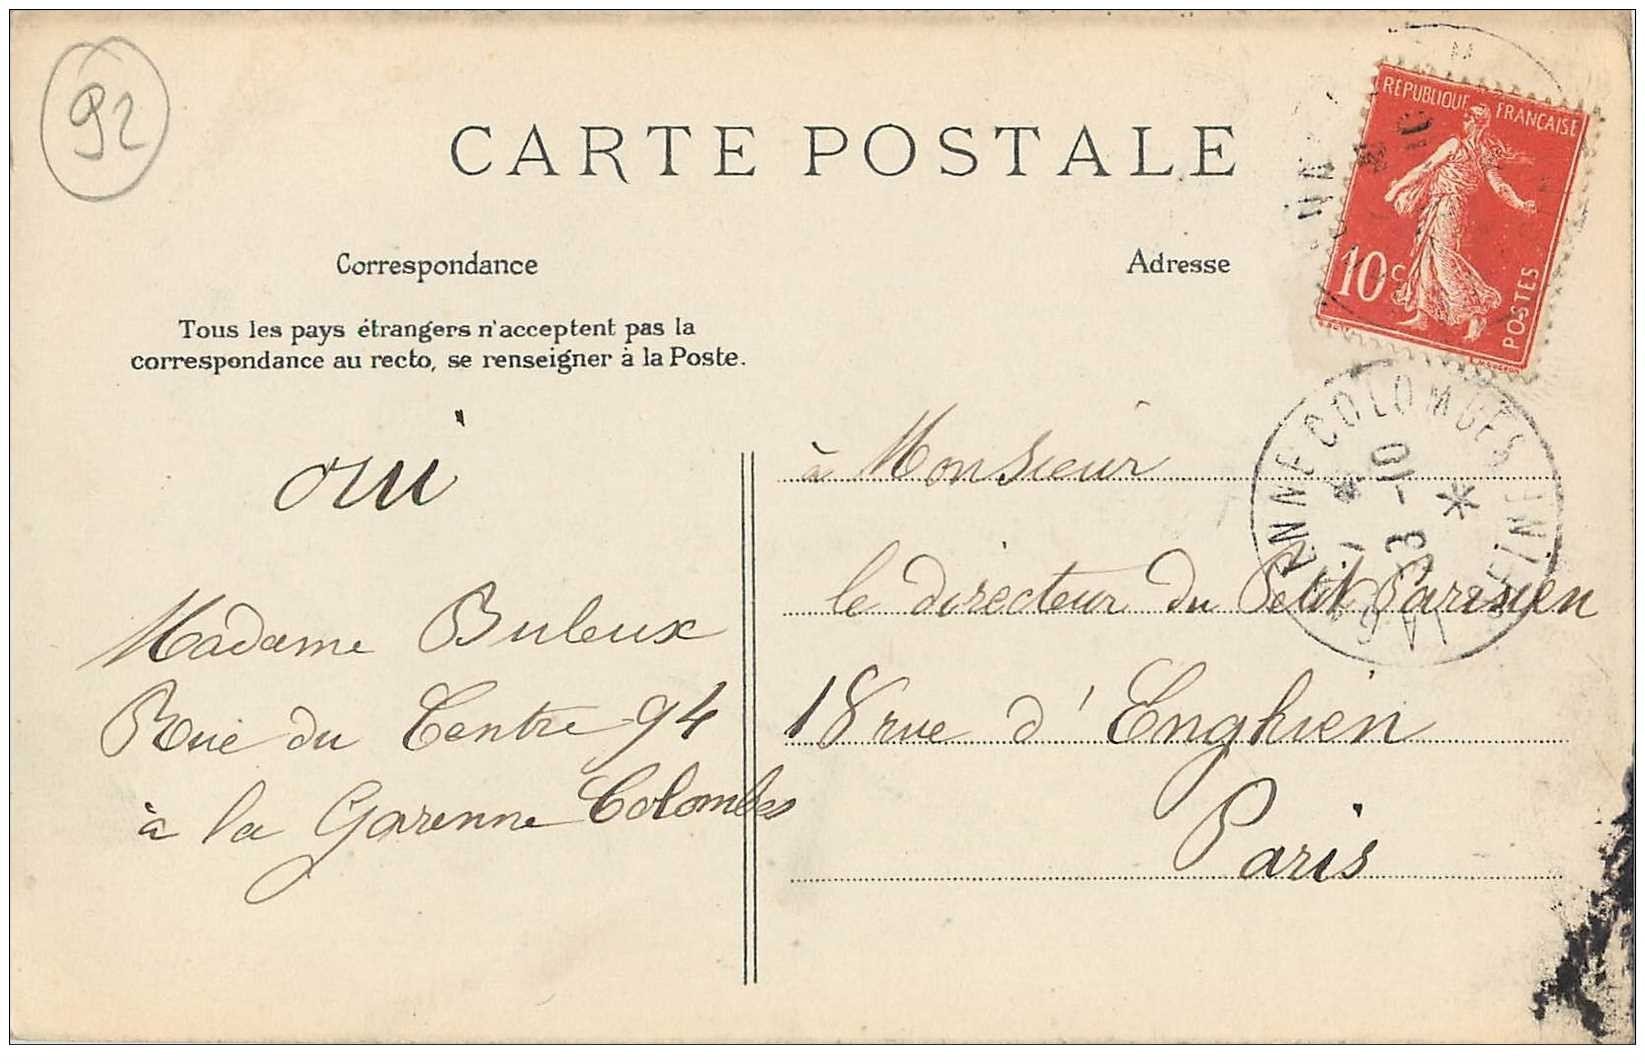 92
CARTE POSTALE
RÉPUBLIQUE FRANÇAISE
10 c
POSTES
Correspondance
Adresse
Tous les pays étrangers n'acceptent pas la
correspondance au recto, se renseigner à la Poste.
oui
Madame Buleux
Rue du Centre 94
à la Garenne Colombes
à Monsieur
le directeur du Petit Parisien
18 rue d'Enghien
Paris
LA GARENNE COLOMBES
3 -10
SEINE